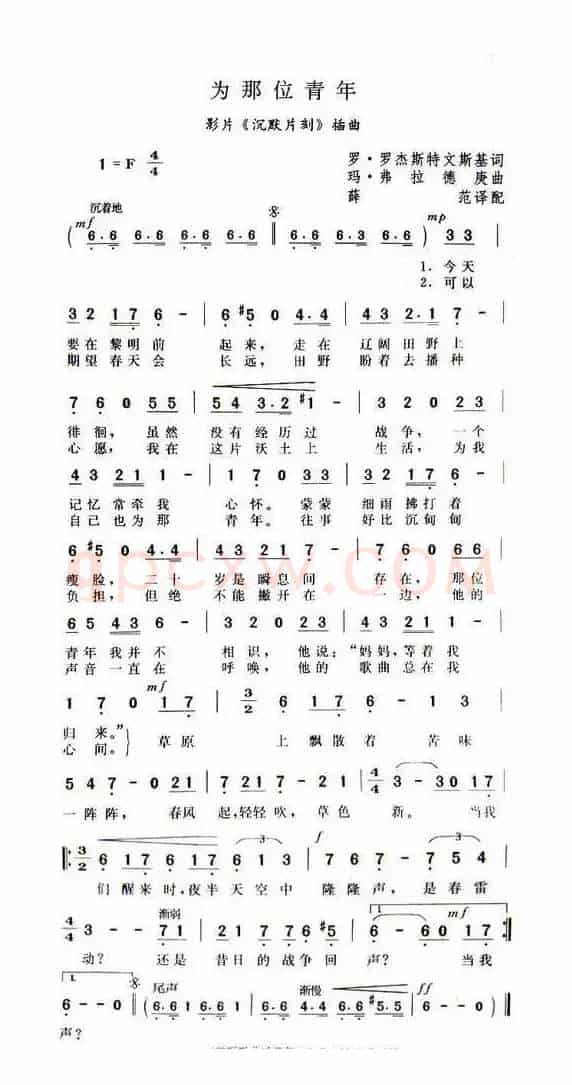 为那位青年
影片《沉默片刻》插曲
1=F 4/4
罗·罗杰斯特文斯基词
玛·弗拉德庚曲
薛范译配
沉着地
mf
mp
(6·6 6·6 6·6 6·6 6·6 6·6 6·3 6·6) 33
1. 今天
2. 可以
32 176 - | 6 #5 0 4·4 | 43 2·1 7 -
要在黎明前 起来，走在 辽阔田野上
期望春天会 长远，田野 盼着去播种
7 6 0 55 | 54 3·2 #1 - | 32 0 23
徘徊，虽然 没有经历过 战争，一个
心愿，我在 这片沃土上 生活，为我
43 211 - | 17 0 33 | 32 176 -
记忆常牵我 心怀。蒙蒙 细雨拂打着
自己也为那 青年。往事 好比沉甸甸
6 #5 0 4·4 | 43 217 - | 76 0 66
瘦脸，二十 岁是瞬息间 存在，那位
负担，但绝 不能撇开在 一边，他的
65 436 - | 32 0 23 | 43 213 -
青年我并不 相识，他说：“妈妈，等着我
声音一直在 呼唤，他的 歌曲总在我
mf
1 7 0 17 | 3/2 6 176 - 13
归来。”
心间。
草原 上飘散着 苦味
547 - 021 | 7 217 - 21 | 4/4 3 - - 30 17
一阵阵， 春风 起，轻轻吹，草色 新。 当我
3
f
3
3/2 6 17 6 17 6 13 | 176 - 754
们醒来时，夜半天空中 隆隆声，是春雷
渐弱
1.
mf
4/4 3 - - 71 | 7217 76 #5 | 6 - 60 17
动？ 还是 昔日的战争回 声？ 当我
1.
尾声
渐慢
ff
6 - - 0 | (6·6 1 6·1 | 6·6 6·6 6·6 #5·5 | 6 - - 0)
声？
gpcxw.COM